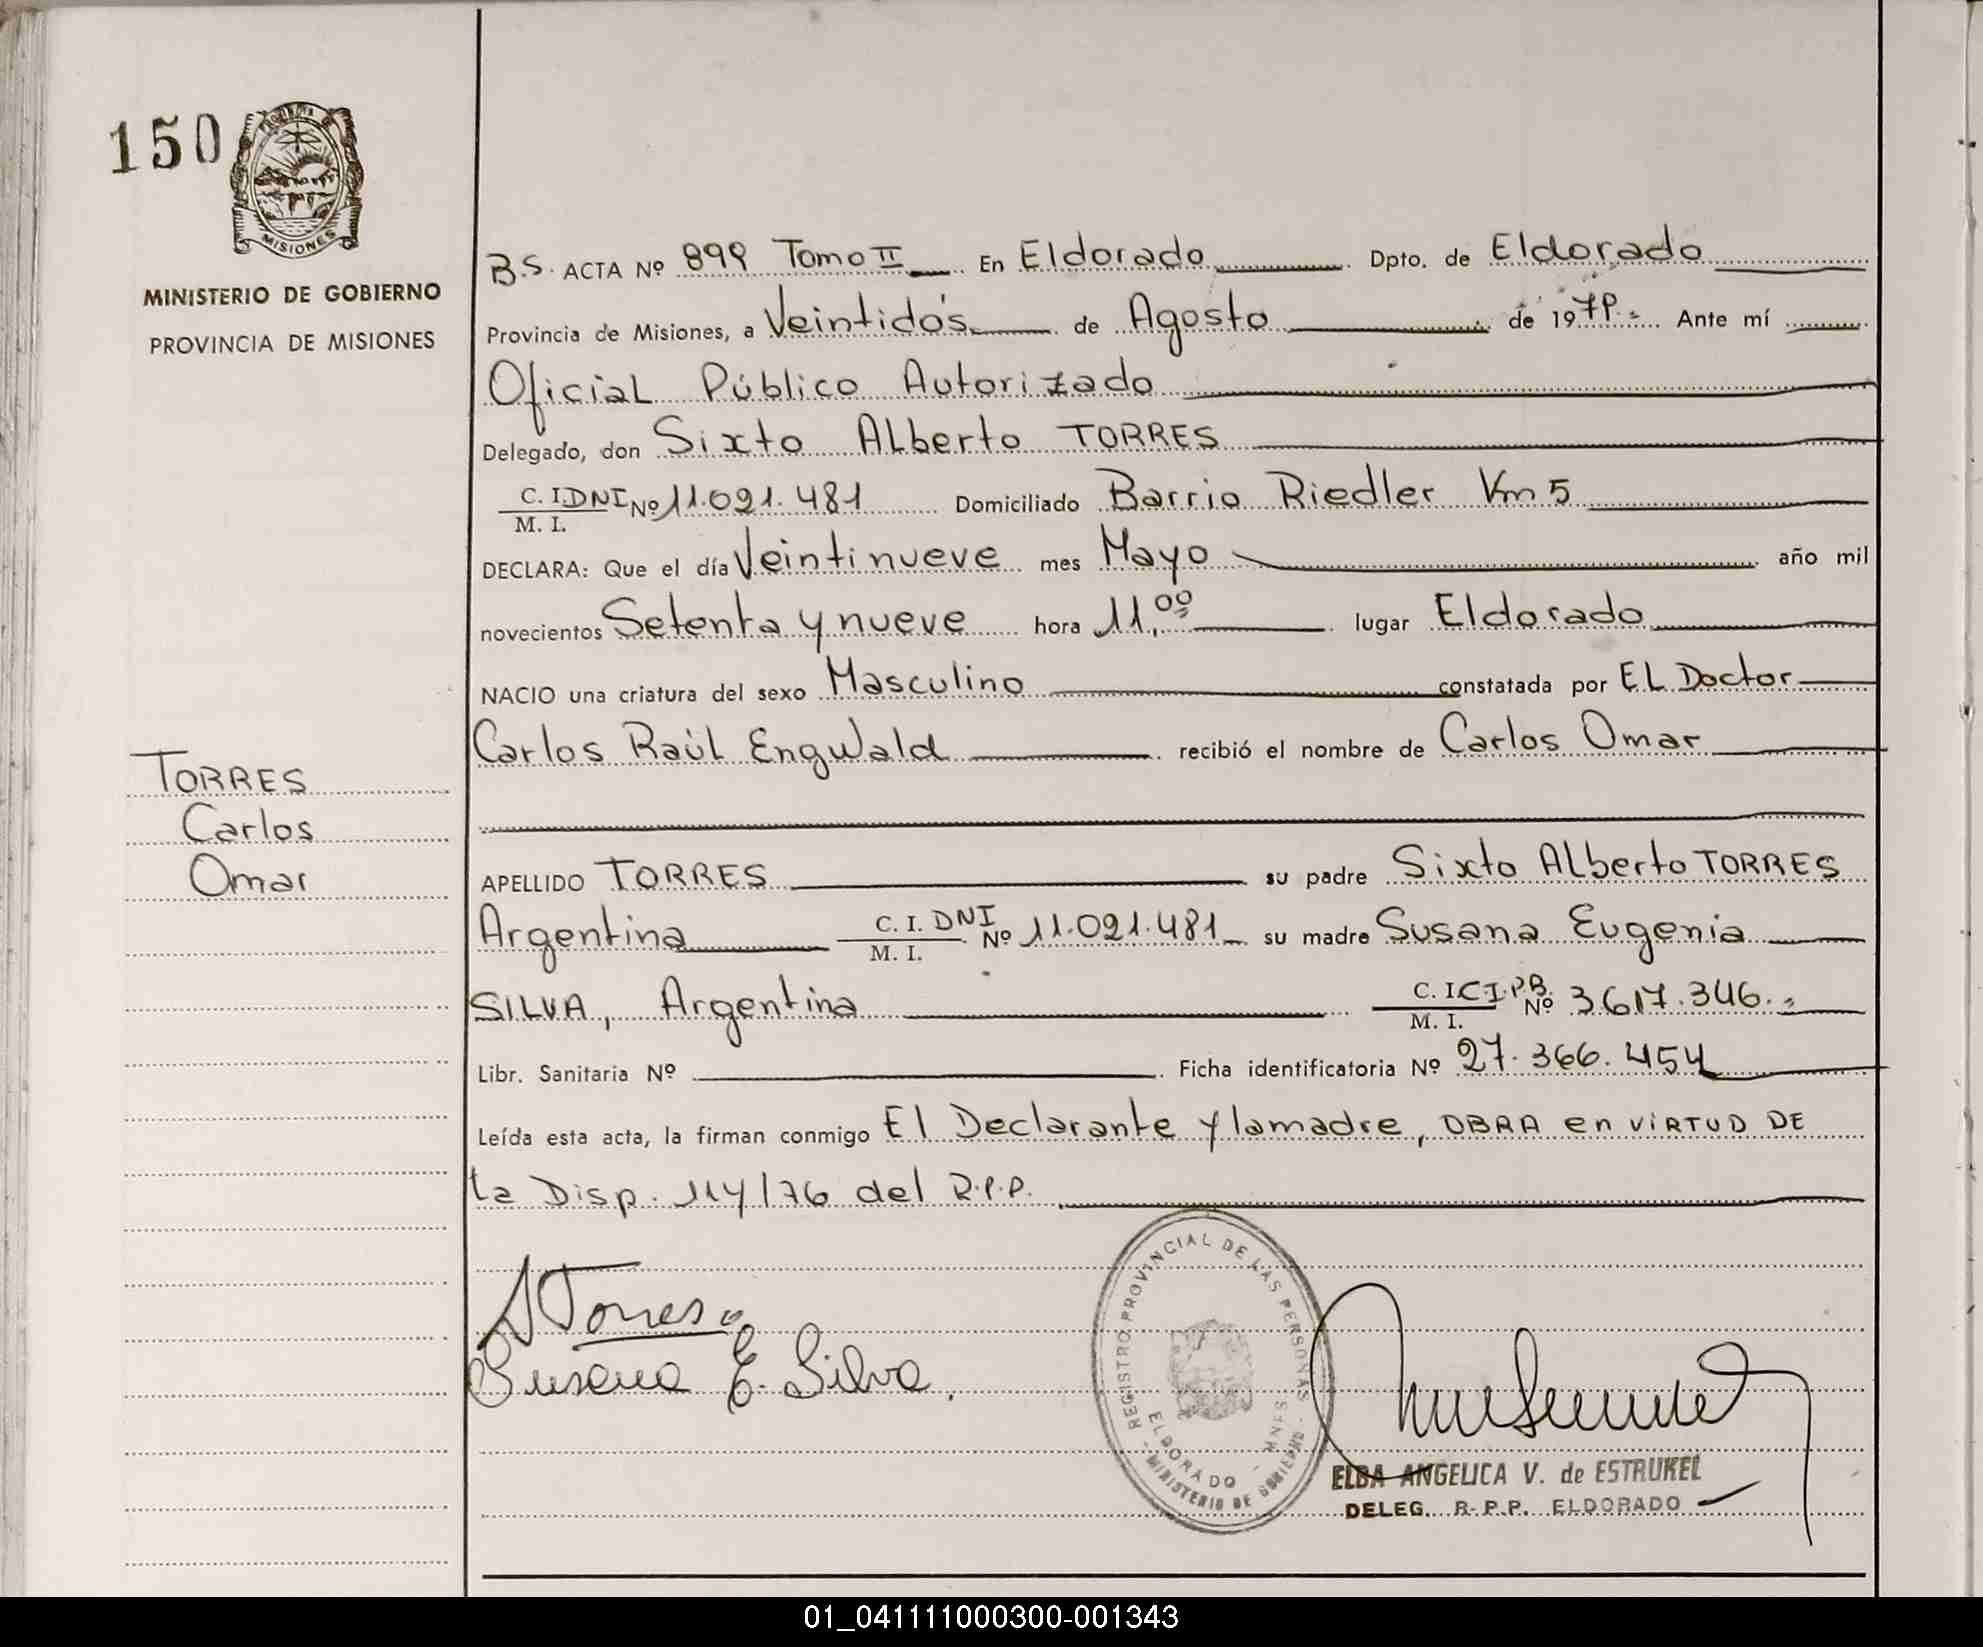 150
PROVINCIA DE
MISIONES
MINISTERIO DE GOBIERNO
PROVINCIA DE MISIONES
B.S. ACTA Nº 899 Tomo II En Eldorado Dpto. de Eldorado
Provincia de Misiones, a Veintidós de Agosto de 1979.- Ante mí
Oficial Público Autorizado
Delegado, don Sixto Alberto TORRES
C. I. DNI Nº 11.021.481 Domiciliado Barrio Riedler Km 5
M. I.
DECLARA: Que el día Veintinueve mes Mayo año mil
novecientos Setenta y nueve hora 11,00 lugar Eldorado
NACIO una criatura del sexo Masculino constatada por EL Doctor
Carlos Raúl Engwald recibió el nombre de Carlos Omar
TORRES
Carlos
Omar
APELLIDO TORRES su padre Sixto Alberto TORRES
Argentina C. I. DNI Nº 11.021.481 su madre Susana Eugenia
M. I.
SILVA, Argentina C. I. C.I.P.B. Nº 3.617.346.-
M. I.
Libr. Sanitaria Nº Ficha identificatoria Nº 27.366.454
Leída esta acta, la firman conmigo El Declarante y la madre, OBRA en VIRTUD DE
la Disp. 114/76 del R.P.P.
STorres
Susana E. Silva.
REGISTRO PROVINCIAL DE LAS PERSONAS
ELDORADO - MNES.
- MINISTERIO DE GOBIERNO -
ELBA ANGELICA V. de ESTRUKEL
DELEG. R-P.P. ELDORADO
01_041111000300-001343